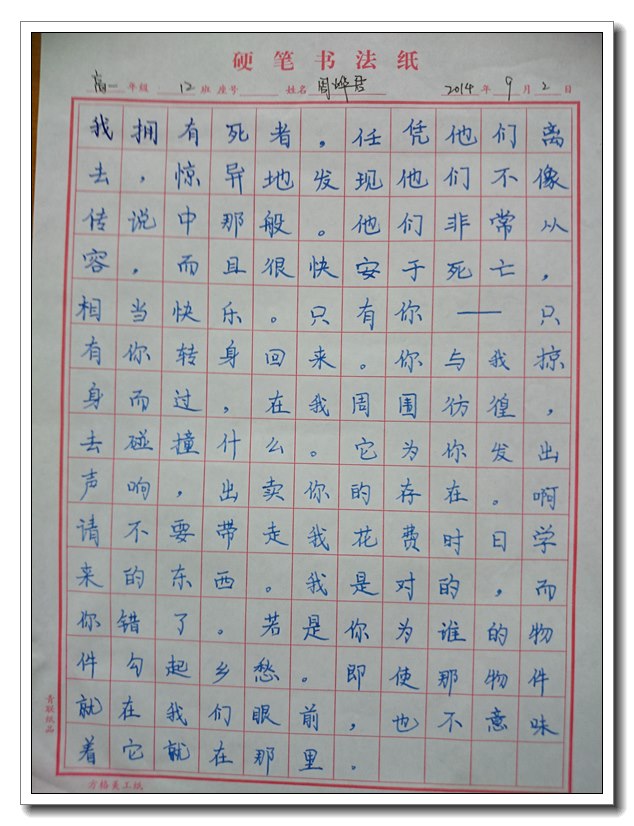 硬笔书法纸
高一年级 12班 座号 姓名 周烨君 2014年9月2日
我拥有死者，任凭他们离
去，惊异地发现他们不像
传说中那般。他们非常从
容，而且很快安于死亡，
相当快乐。只有你——只
有你转身回来。你与我掠
身而过，在我周围彷徨，
去碰撞什么。它为你发出
声响，出卖你的存在。啊
请不要带走我花费时日学
来的东西。我是对的，而
你错了。若是你为谁的物
件勾起乡愁。即使那物件
就在我们眼前，也不意味
着它就在那里。
青联纸品
方格美工纸